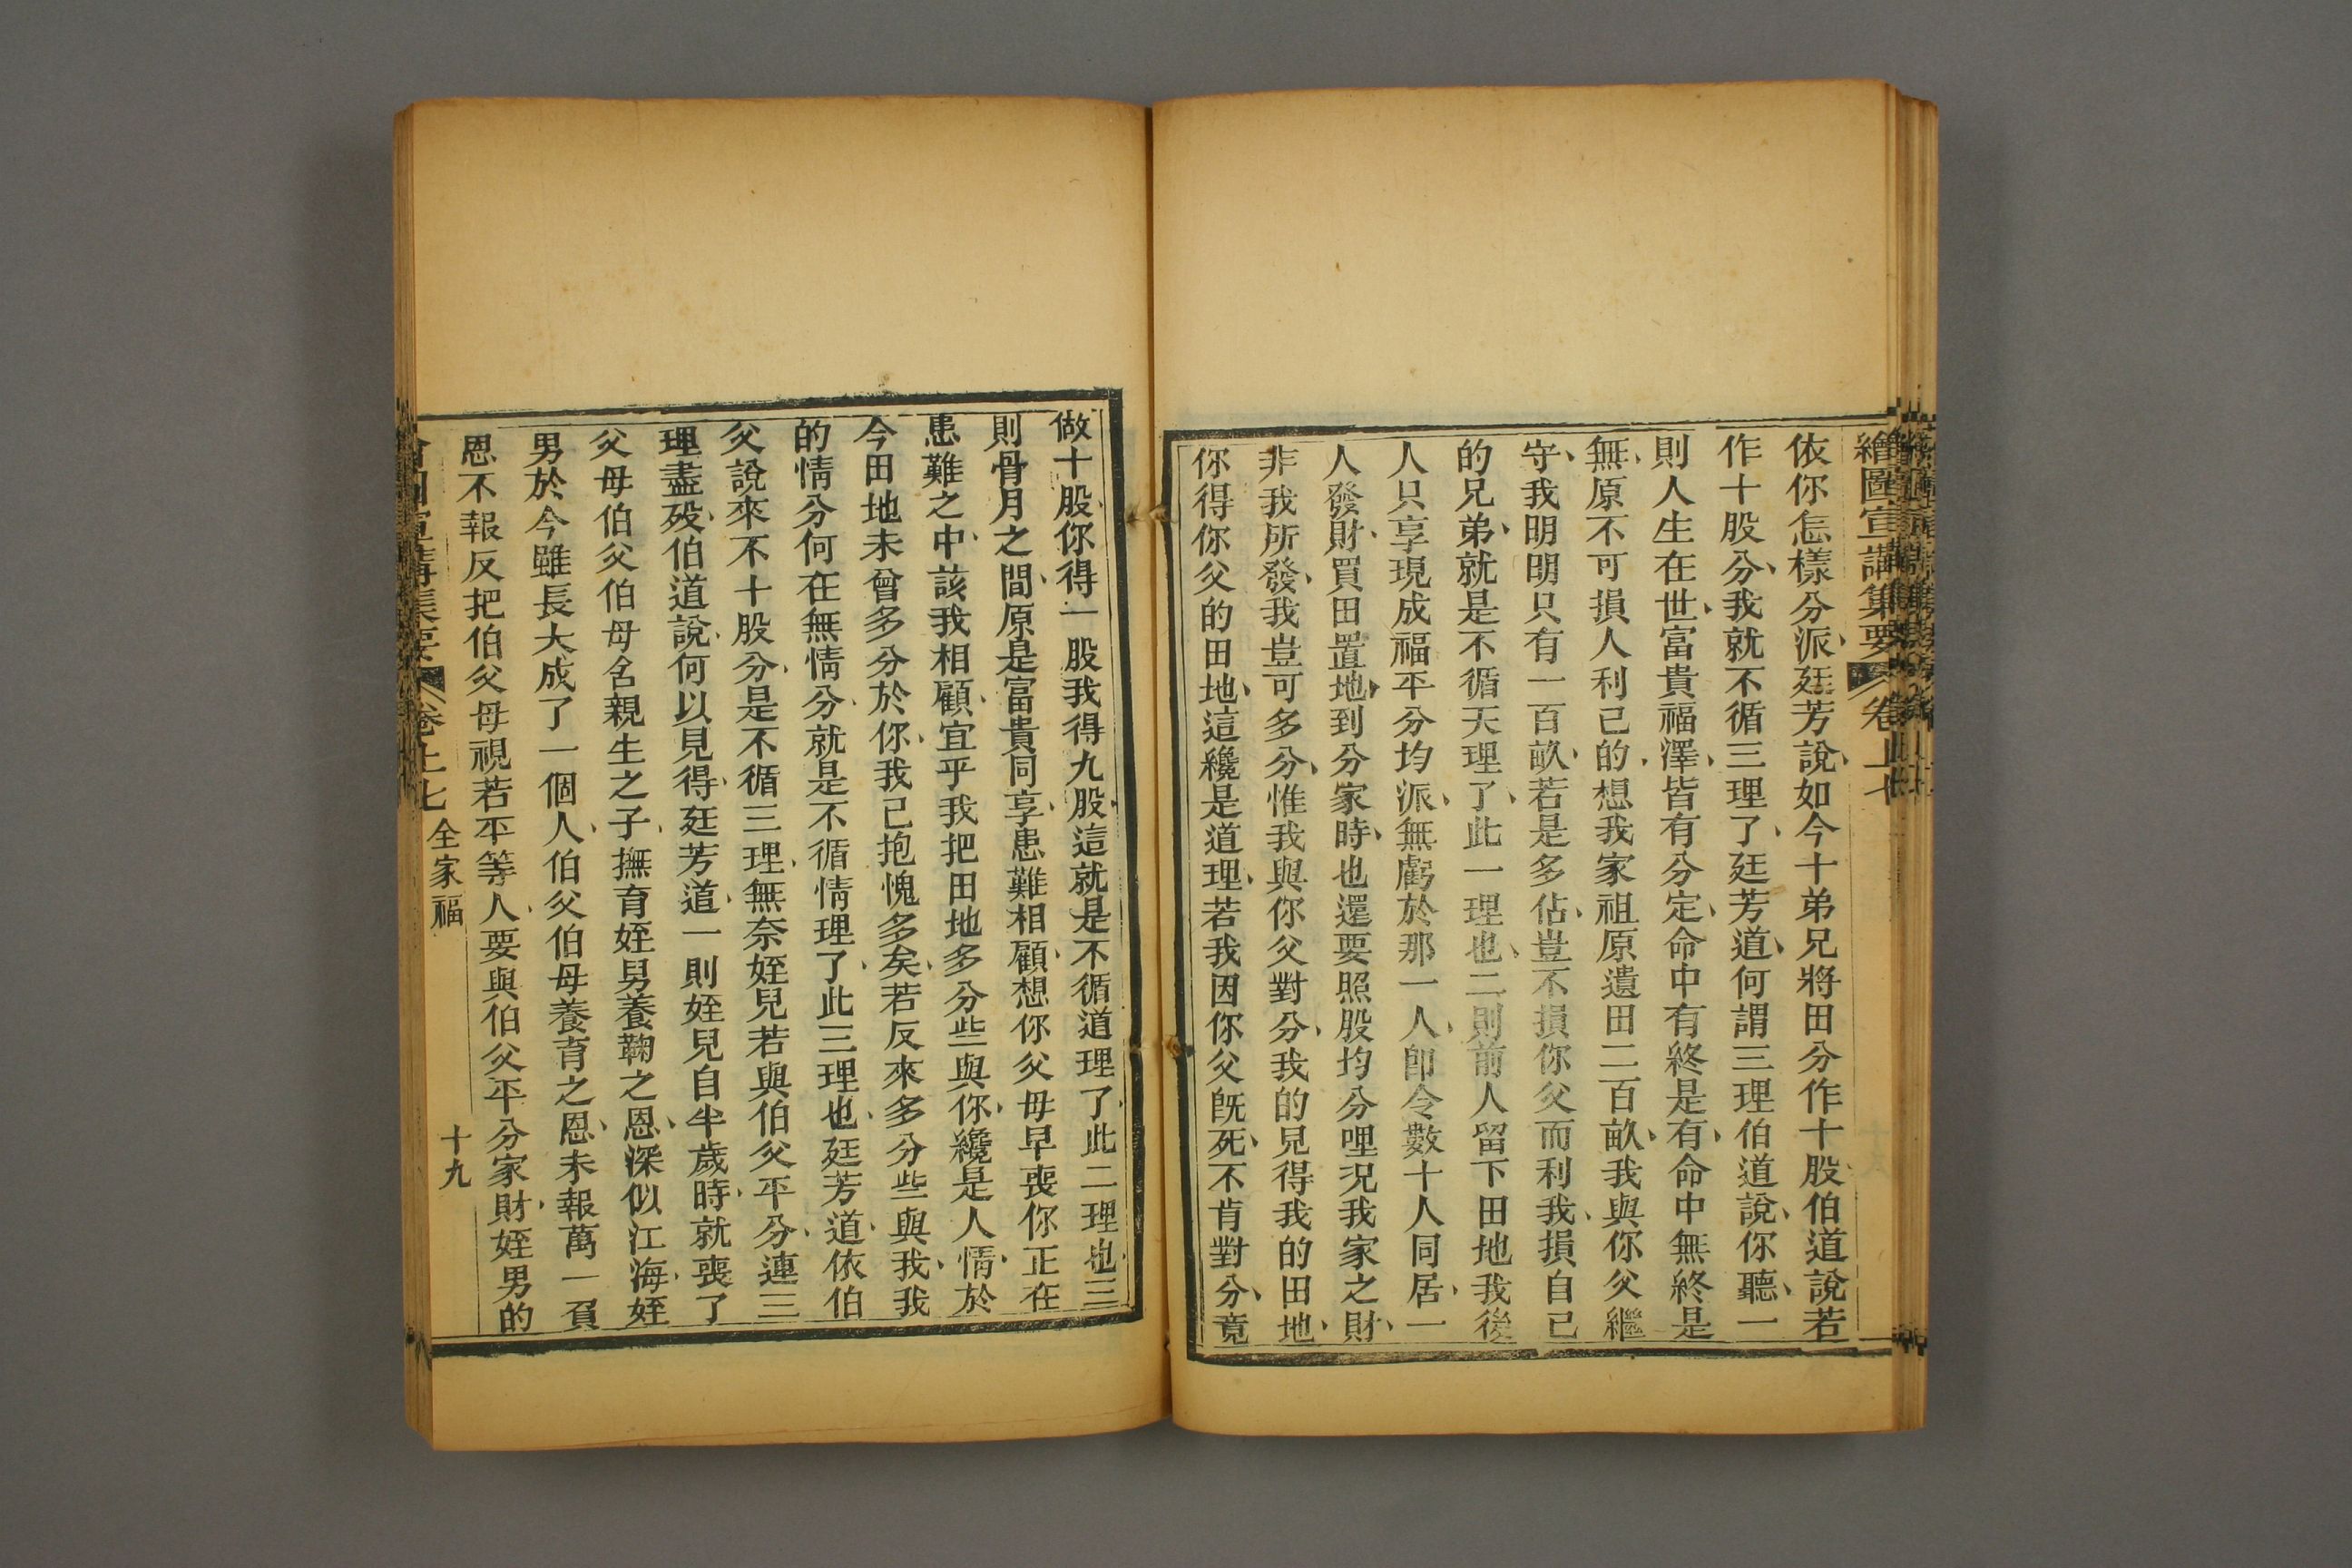 繪圖宣講集要 卷上七
依你怎樣分派、廷芳說、如今十弟兄將田分作十股伯道說若
作十股分、我就不循三理了、廷芳道、何謂三理伯道說、你聽、一
則人生在世、富貴福澤、皆有分定、命中有終是有、命中無終是
無、原不可損人利己的、想我家祖原遺田二百畝、我與你父繼
守、我明明只有一百畝、若是多佔、豈不損你父而利我、損自己
的兄弟、就是不循天理了、此一理也、二則前人留下田地我後
人只享現成福平分均派、無虧於那一人、卽令數十人同居、一
人發財、買田置地、到分家時、也還要照股均分哩況我家之財、
非我所發、我豈可多分、惟我與你父對分、我的兒得我的田地、
你得你父的田地、這纔是道理、若我因你父旣死、不肯對分、竟
做十股、你得一股我得九股、這就是不循道理了、此二理也、三
則骨月之間、原是富貴同享、患難相顧、想你父母早喪你正在
患難之中、該我相顧、宜乎我把田地多分些與你、纔是人情、於
今田地未曾多分於你、我已抱愧多矣、若反來多分些與我、我
的情分何在無情分、就是不循情理了、此三理也、廷芳道、依伯
父說來不十股分、是不循三理、無奈姪兒若與伯父平分、連三
理盡歿、伯道說、何以見得、廷芳道、一則姪兒自半歲時、就喪了
父母伯父伯母名親生之子、撫育姪男養鞠之恩、深似江海、姪
男於今雖長大成了一個人、伯父伯母養育之恩、未報萬一、負
恩不報反把伯父母視若平等人、要與伯父平分家財、姪男的
宣講集要 卷上七 全家福 十九